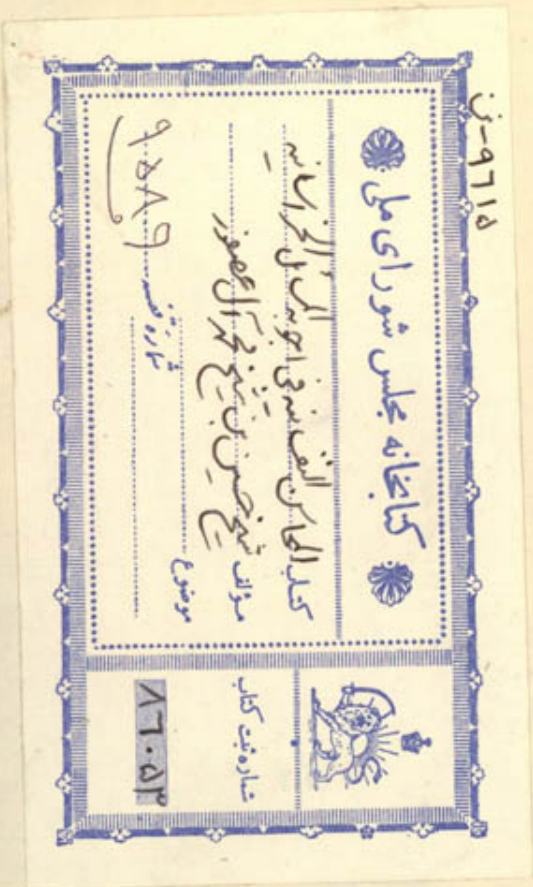 ن-۹۶۱۵
کتابخانه مجلس شورای ملی
کتاب المحاسن النفسانیه فی اجوبة المسائل الخراسانیه
مؤلف شیخ حسین بن شیخ محمد آل عصفور
موضوع
شماره قفسه ۹۵۸۹
شماره ثبت کتاب
۸۶۰۵۳